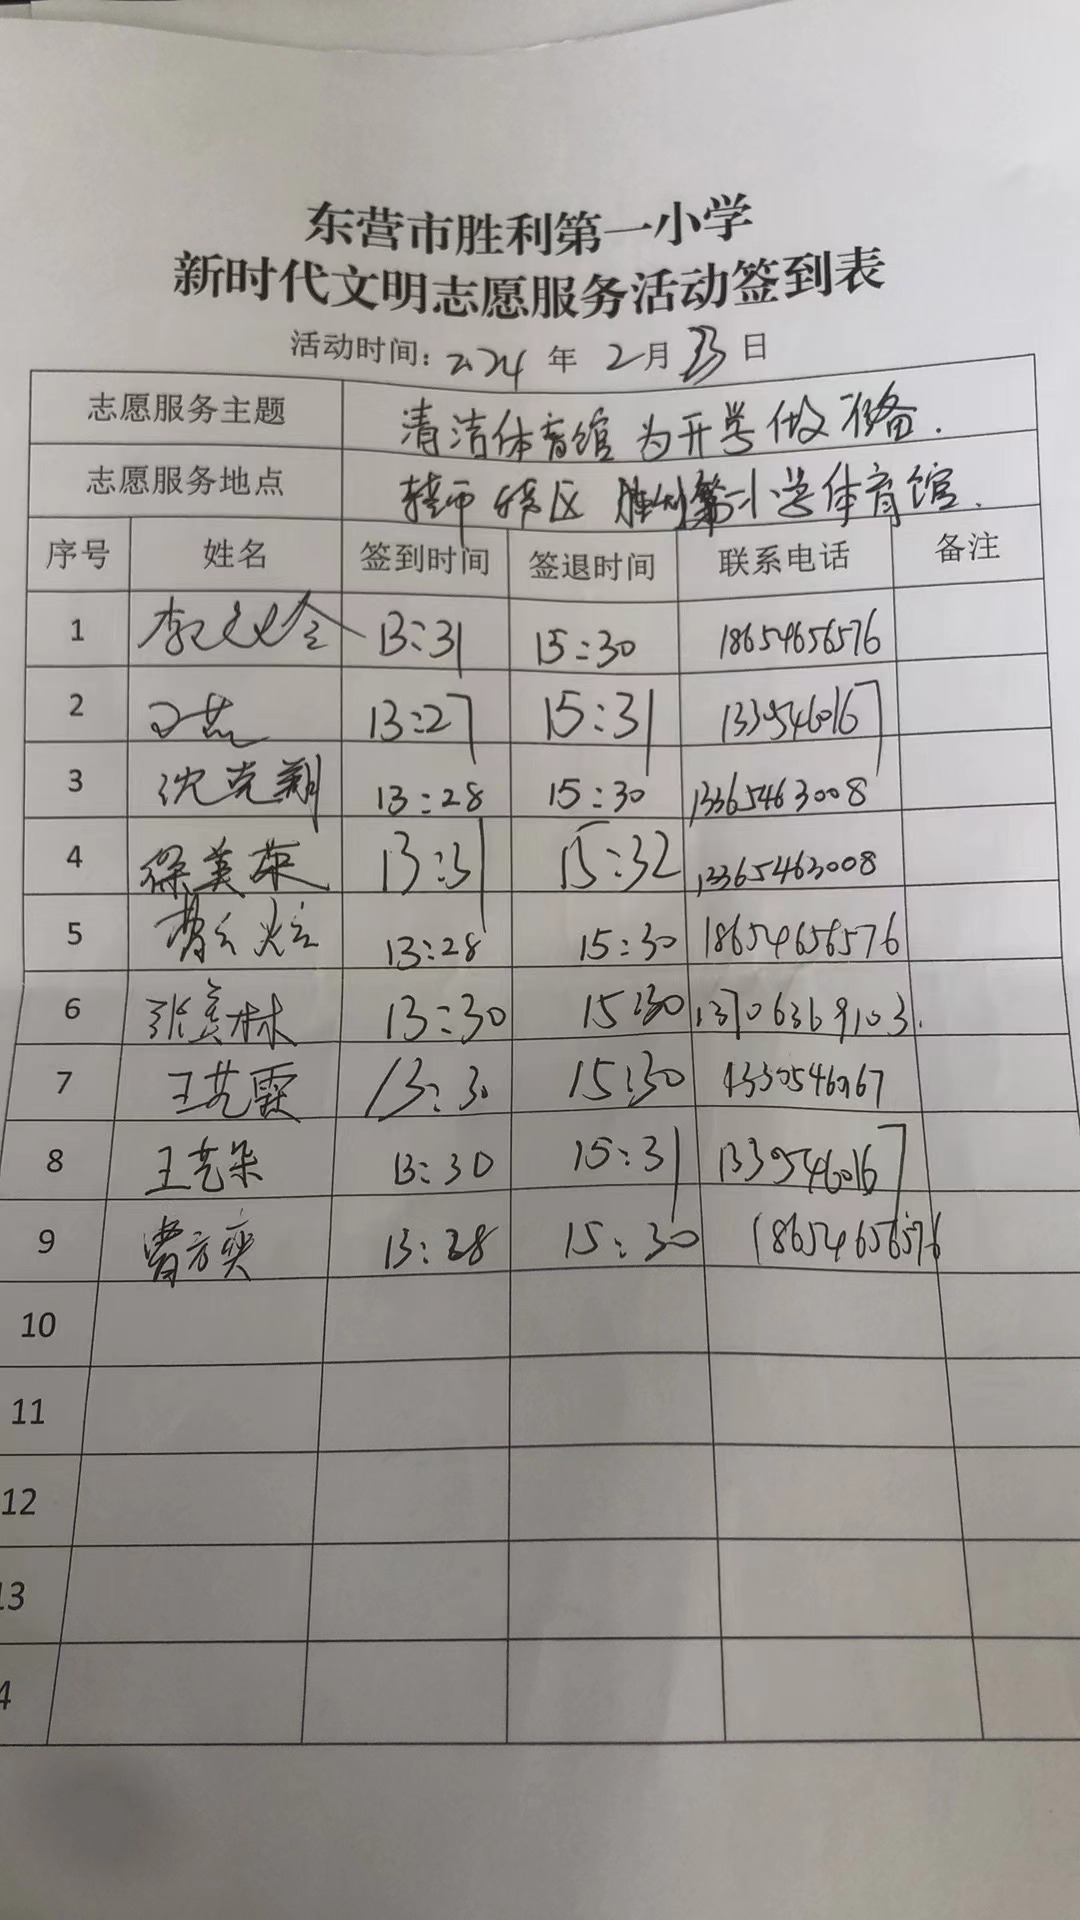 东营市胜利第一小学
新时代文明志愿服务活动签到表
活动时间：2024 年 2 月 23 日
志愿服务主题 清洁体育馆 为开学做准备.
志愿服务地点 校区 胜利第一小学体育馆.
序号 姓名 签到时间 签退时间 联系电话 备注
1 13:31 15:30 18654656576
2 13:27 15:31
3 沈克翔 13:28 15:30 13365463008
4 徐美荣 13:31 15:32 13365463008
5 13:28 15:30 18654656576
6 13:30 15:30 13706369103.
7 王艺霖 13:30 15:30
8 王艺朵 13:30 15:31
9 曹方奕 13:28 15:30 18654656576
10
11
12
13
4